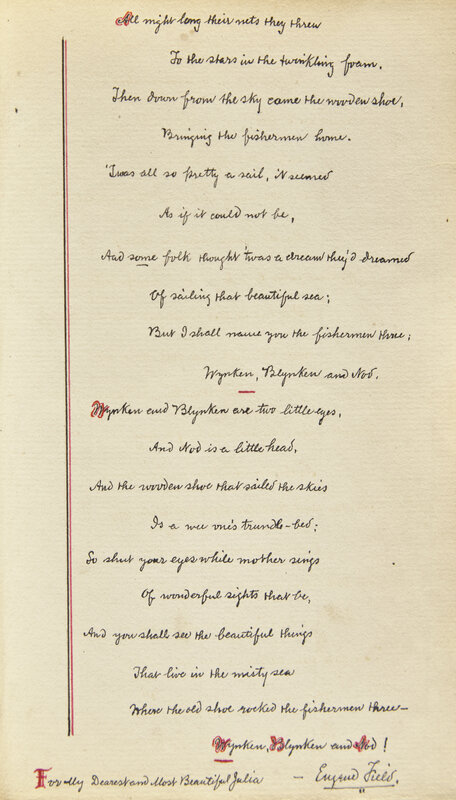 All night long their nets they threw
To the stars in the twinkling foam.
Then down from the sky came the wooden shoe,
Bringing the fishermen home.
'Twas all so pretty a sail, it seemed
As if it could not be,
And some folk thought 'twas a dream they'd dreamed
Of sailing that beautiful sea;
But I shall name you the fishermen three;
Wynken, Blynken and Nod.
Wynken and Blynken are two little eyes,
And Nod is a little head,
And the wooden shoe that sailed the skies
Is a wee one's trundle-bed;
So shut your eyes while mother sings
Of wonderful sights that be,
And you shall see the beautiful things
That live in the misty sea
Where the old shoe rocked the fishermen three—
Wynken, Blynken and Nod!
For My Dearest and Most Beautiful Julia — Eugene Field.